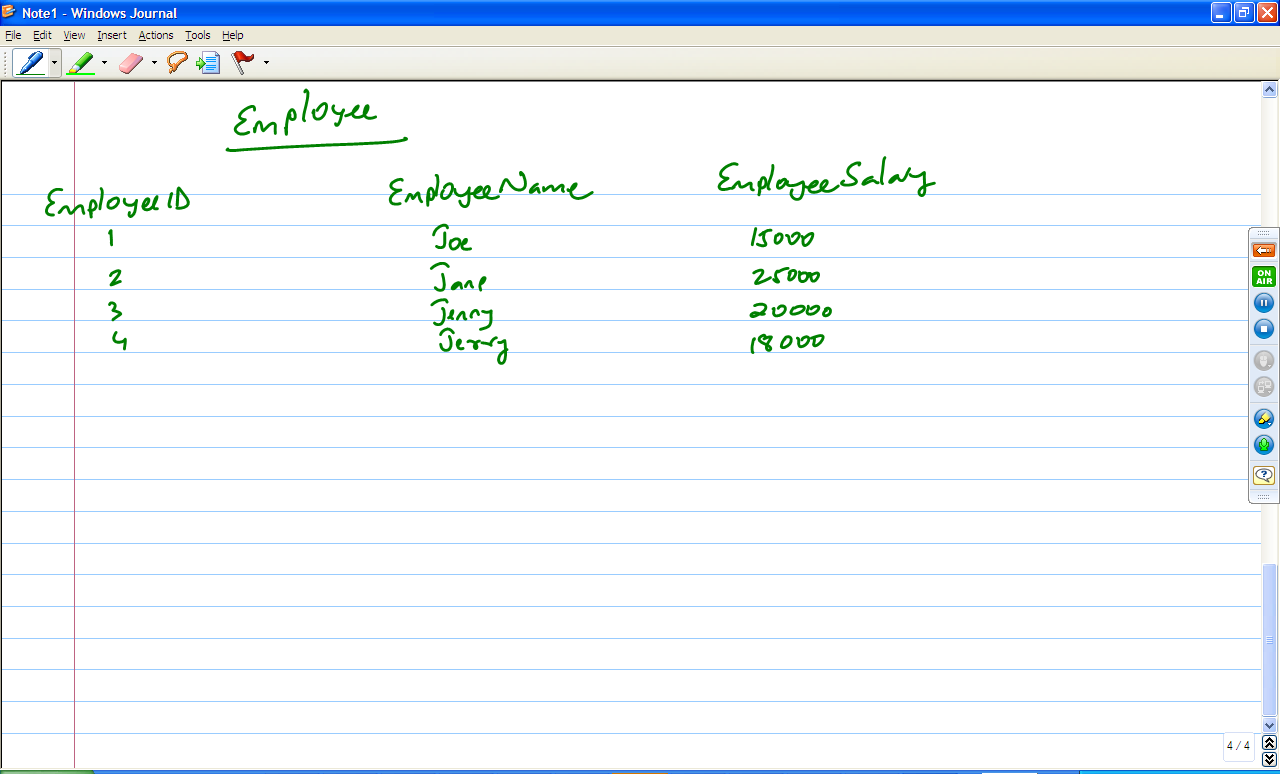 Note1 - Windows Journal
File Edit View Insert Actions Tools Help
Employee
EmployeeID EmployeeName EmployeeSalary
1 Joe 15000
2 Jane 25000
3 Jenny 20000
4 Jerry 18000
ON
AIR
4 / 4